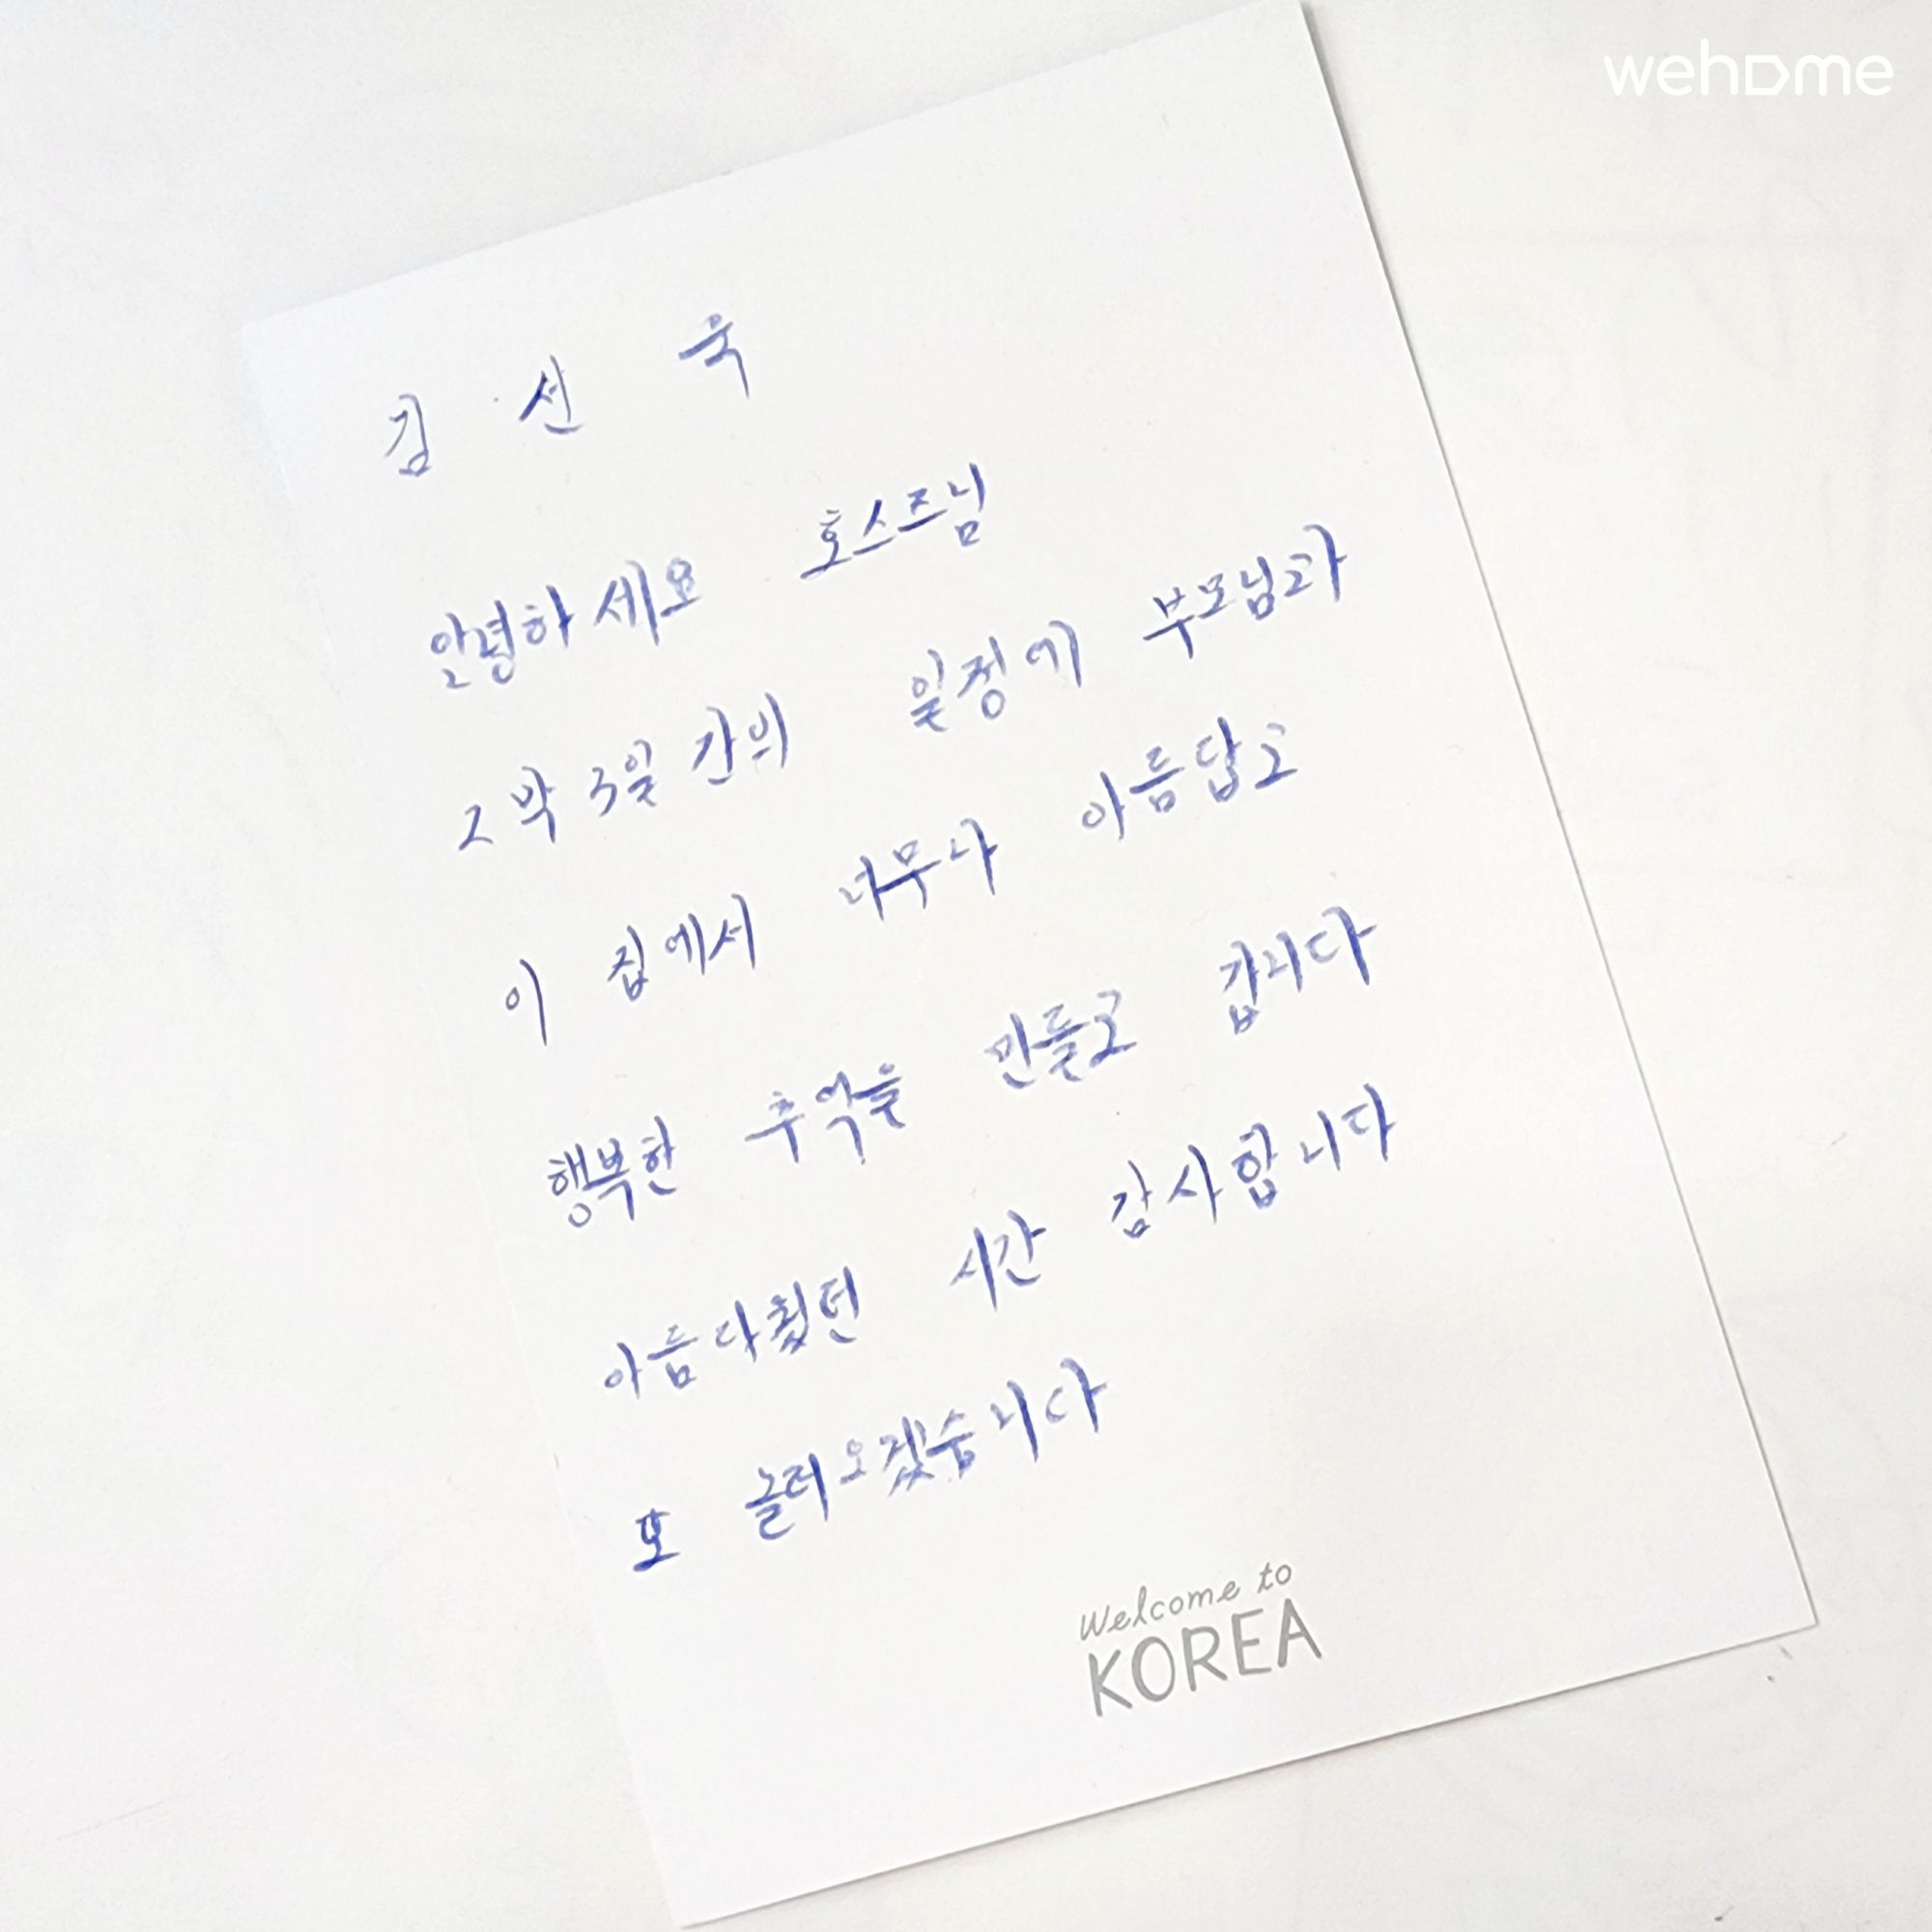 wehome
김 선 욱
안녕하세요 호스즈님
2박 3일간의 일정에 부모님과
이 집에서 너무나 아름답고
행복한 추억을 만들고 갑니다
아름다웠던 시간 감사합니다
또 놀러오겠습니다
Welcome to
KOREA